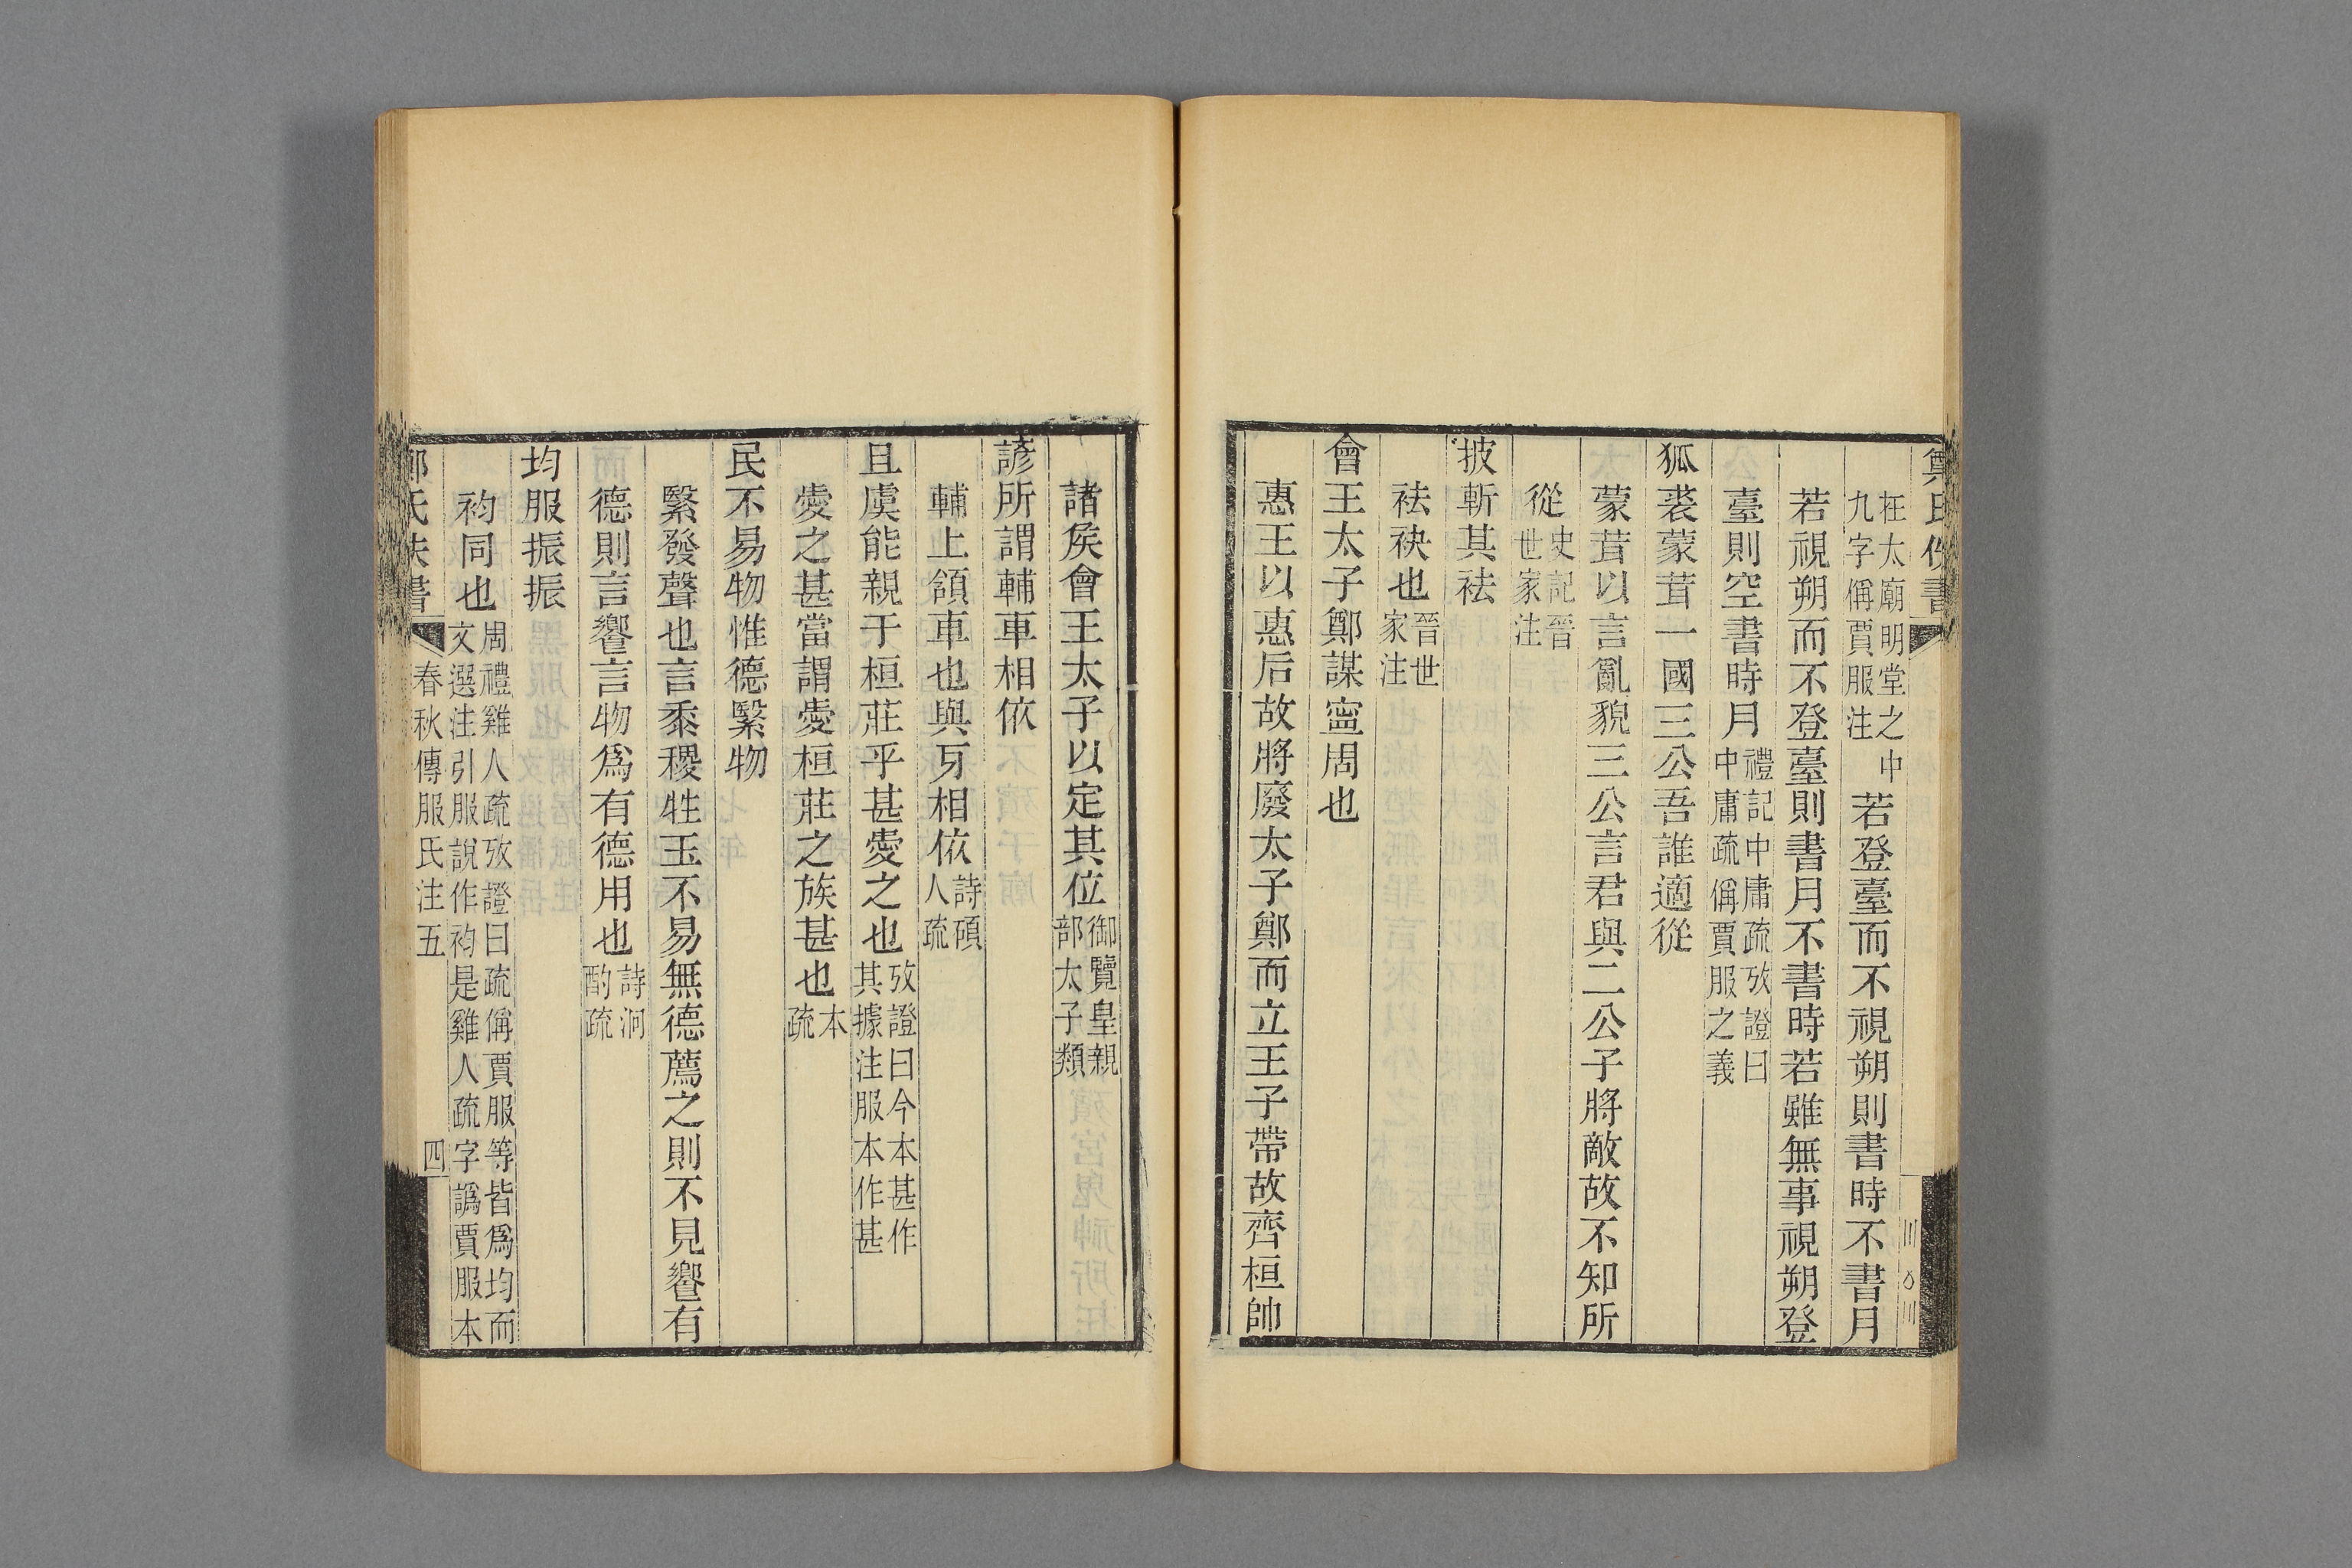 在太廟明堂之中
九字偁賈服注
若登臺而不視朔則書時不書月
若視朔而不登臺則書月不書時若雖無事視朔登
臺則空書時月
禮記中庸疏攷證曰
中庸疏偁賈服之義
狐裘蒙茸一國三公吾誰適從
蒙茸以言亂貌三公言君與二公子將敵故不知所
從
史記晉
世家注
披斬其袪
袪袂也
晉世
家注
會王太子鄭謀寍周也
惠王以惠后故將廢太子鄭而立王子帶故齊桓帥
諸矦會王太子以定其位
御覽皇親
部太子類
諺所謂輔車相依
輔上頷車也與牙相依
詩碩
人疏
且虞能親于桓莊乎甚愛之也
攷證曰今本甚作
其據注服本作甚
愛之甚當謂愛桓莊之族甚也
本
疏
民不易物惟德繄物
繄發聲也言黍稷牲玉不易無德薦之則不見饗有
德則言饗言物爲有德用也
詩泂
酌疏
均服振振
袀同也
周禮雞人疏攷證曰疏偁賈服等皆爲均而
文選注引服說作袀是雞人疏字譌賈服本
春秋傳服氏注五
四